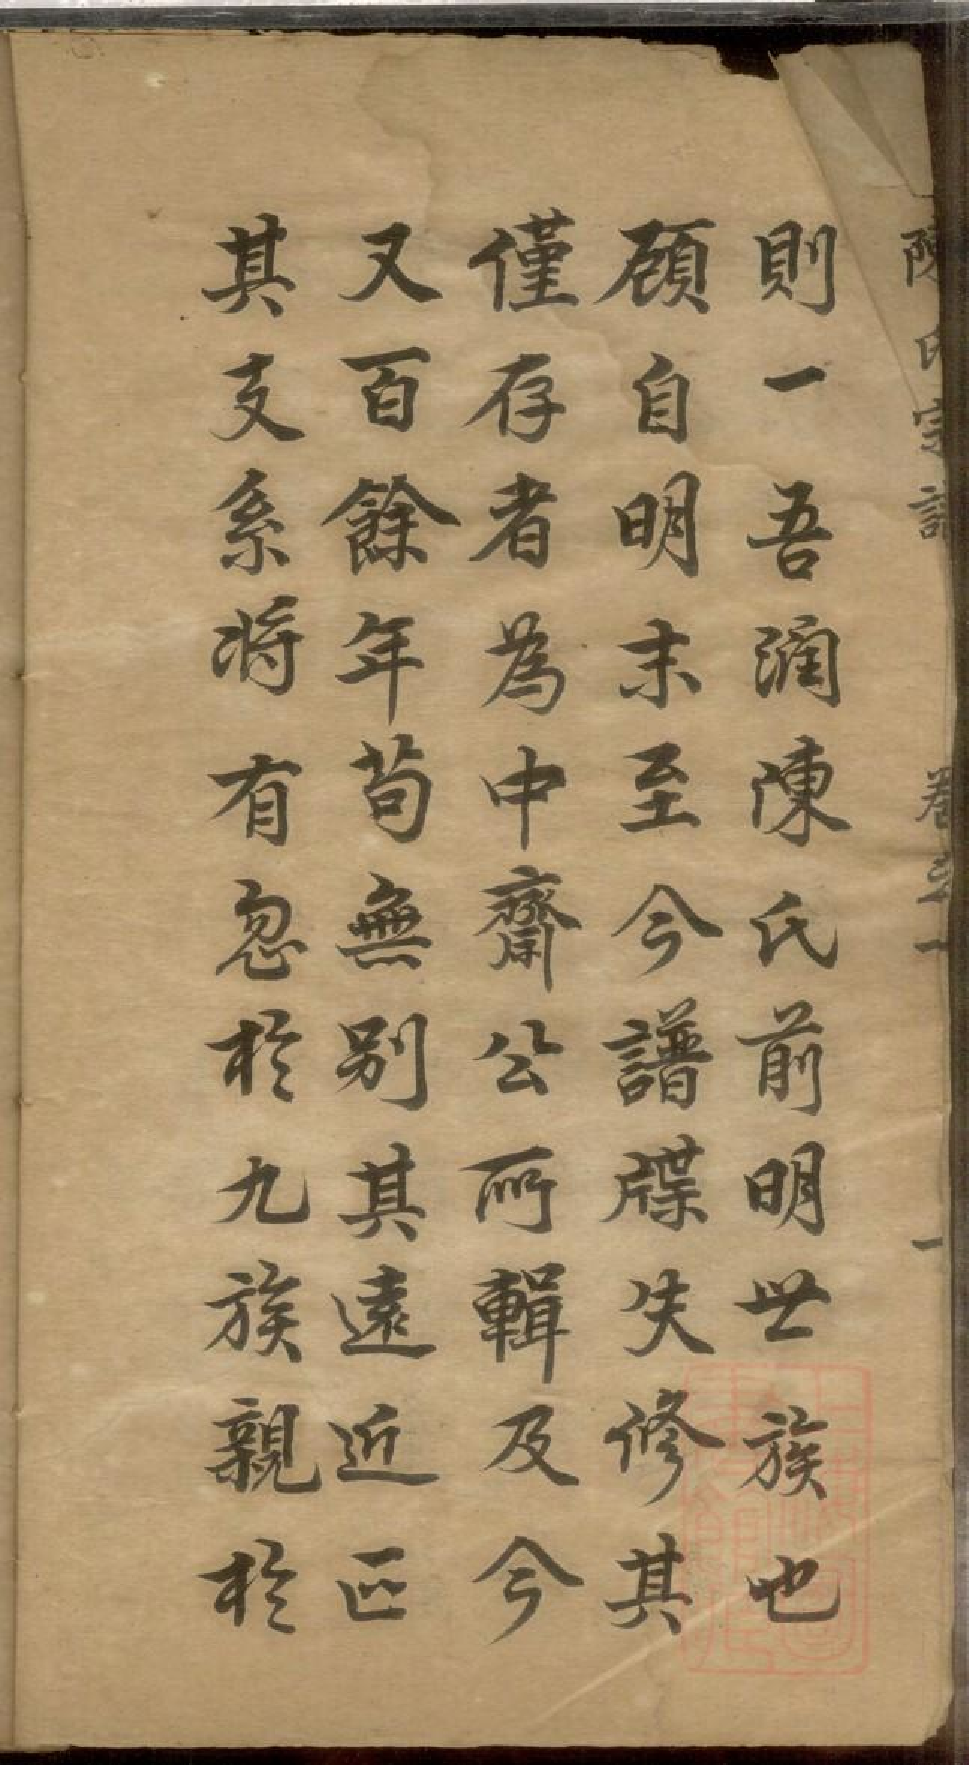 陳氏宗譜 卷之一 一
則一吾潤陳氏前明世族也
顧自明末至今譜牒失修其
僅存者為中齋公所輯及今
又百餘年苟無別其遠近匹
其支系將有忽於九族親於